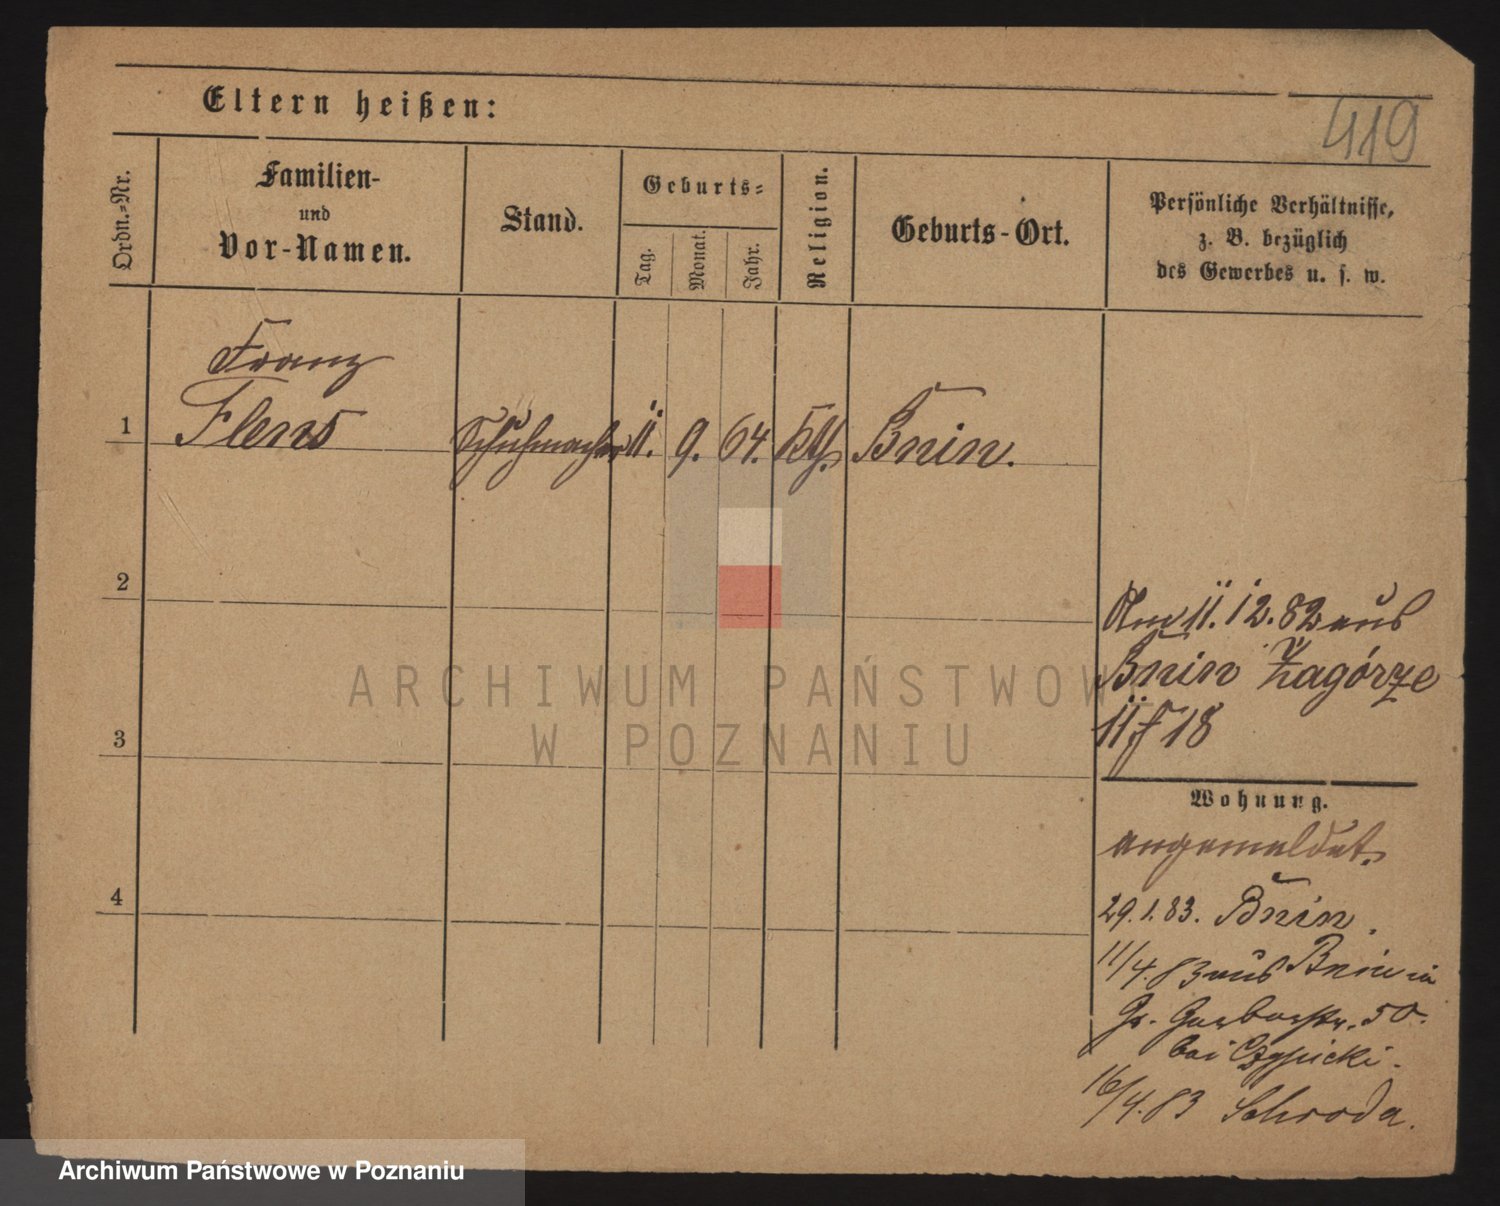 Eltern heißen:
419
Ordn.-Nr.
Familien-
und
Vor-Namen.
Stand.
Geburts-
Tag.
Monat.
Jahr.
Religion.
Geburts-Ort.
Persönliche Verhältnisse,
z. B. bezüglich
des Gewerbes u. s. w.
Franz
1 Flens Schuhmacher 11. 9. 64. kth. Bnin.
2
3
4
Am 11. 12. 82 aus
Bnin Zagórze
11 f 18
Wohnung.
angemeldet.
29.1.83. Bnin.
11/4.83 aus Bnin in
Gr. Gerberstr. 50.
bei Czypicki.
16/4.83 Schroda.
ARCHIWUM PAŃSTWOW
W POZNANIU
Archiwum Państwowe w Poznaniu